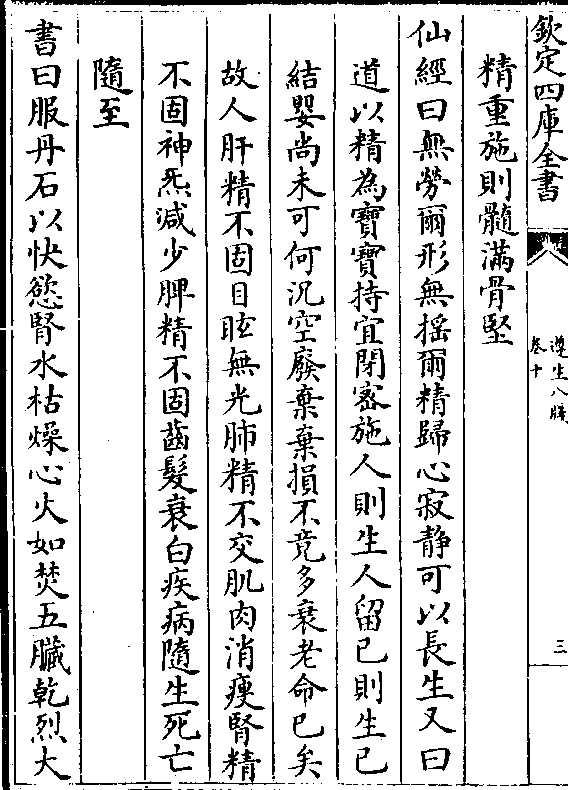 欽定四庫全書
遵生八牋
卷十
三
精重施則髓滿骨堅
仙經曰無勞爾形無揺爾精歸心寂静可以長生又曰
道以精為寶寶持宜閉密施人則生人留已則生已
結嬰尚未可何況空廢棄棄損不竟多衰老命已矣
故人肝精不固目眩無光肺精不交肌肉消瘦腎精
不固神炁減少脾精不固齒髮衰白疾病隨生死亡
隨至
書曰服丹石以快慾腎水枯燥心火如焚五臟乾烈大